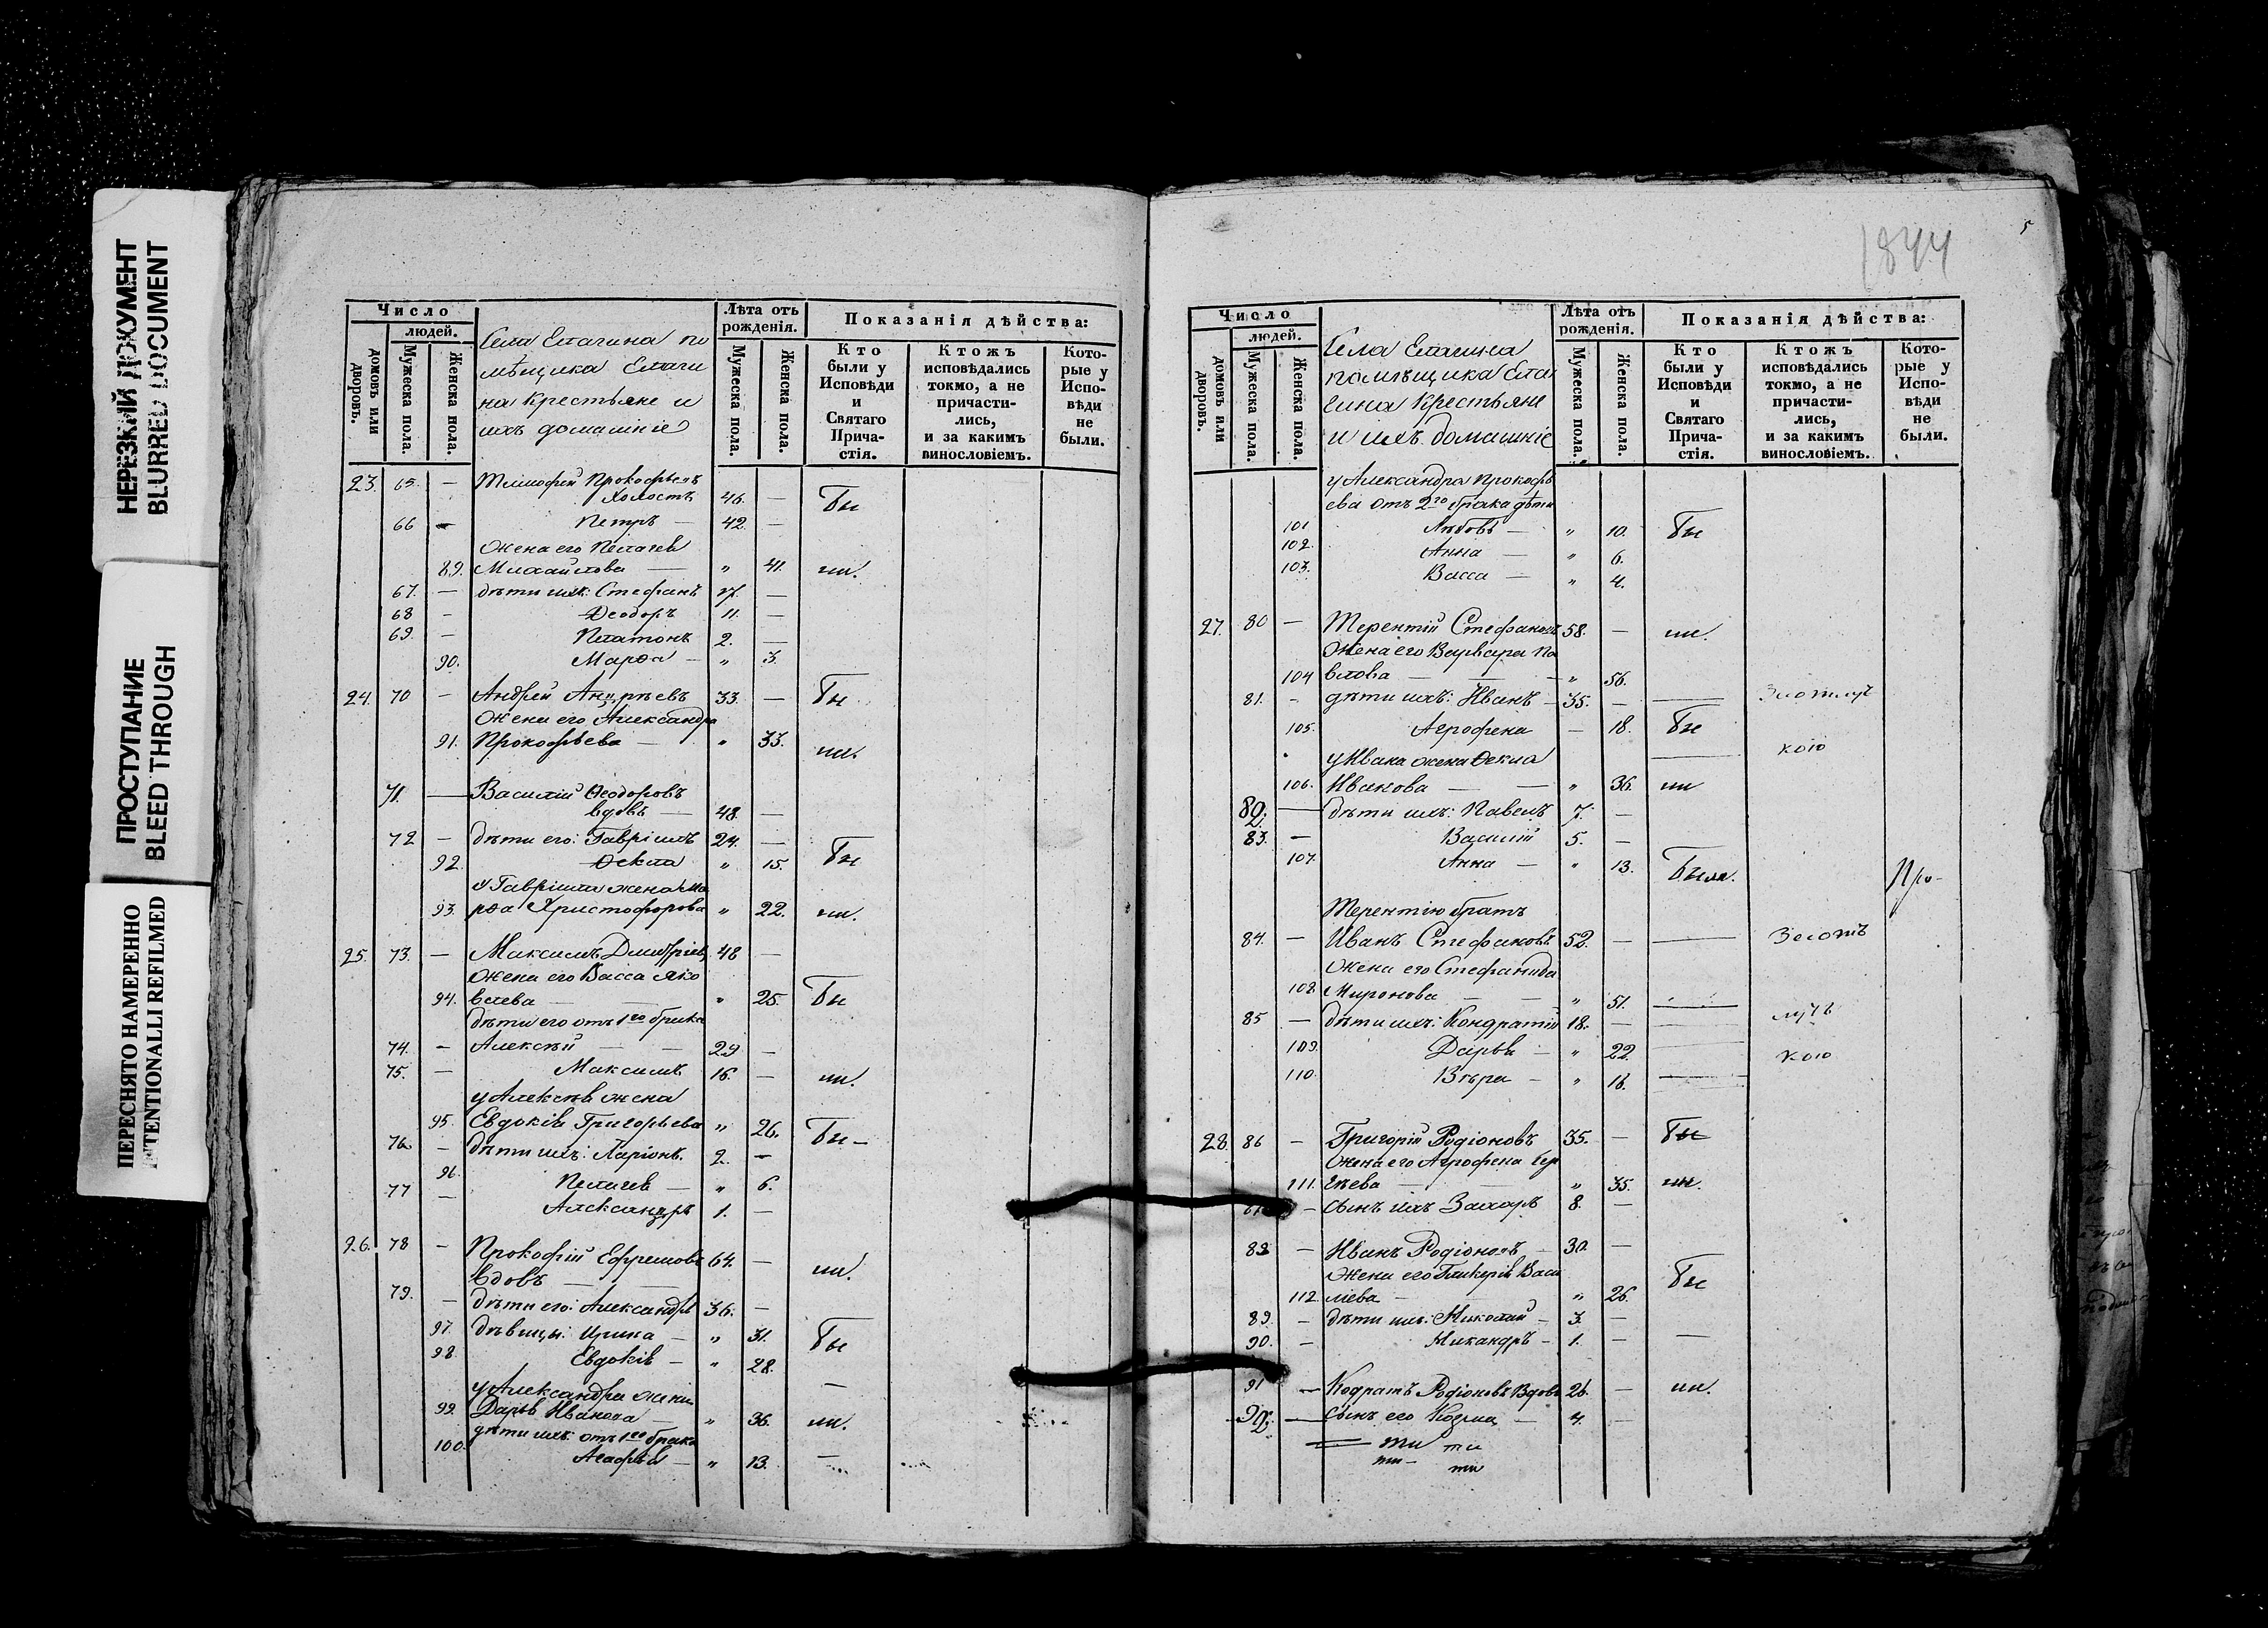 НЕРЕЗКИЙ ДОКУМЕНТ
BLURRED DOCUMENT
ПРОСТУПАНИЕ
BLEED THROUGH
ПЕРЕСНЯТО НАМЕРЕННО
INTENTIONALLI REFILMED
Число
людей.
домовъ или дворовъ.
Мужеска пола.
Женска пола.
Села Елагина по
мѣщика Елаги
на крестьяне и
ихъ домашніе
Лѣта отъ рожденія.
Мужеска пола.
Женска пола.
Показанія дѣйства:
Кто были у Исповѣди и Святаго Причастія.
Ктожъ исповѣдались токмо, а не причастились, и за какимъ винословіемъ.
Которые у Исповѣди не были.
23. 65. — Тимофей Прокофьевъ
Холостъ 46. — Бы
66 — Петръ — 42. —
Жена его Пелагея
89. Михайлова — " 41. ли.
67. — дѣти ихъ: Стефанъ 17. —
68 — Ѳеодоръ 11. —
69. — Платонъ 2. —
90. Марѳа — " 3.
24. 70 — Андрей Андреевъ 33. — Бы
Жена его Александра
91. Прокофьева — " 33. ли.
71. — Василій Ѳеодоровъ
вдовъ — 48. —
72 — дѣти его: Гавріилъ 24. — Бы
92. Ѳекла " 15.
у Гавріила жена Ма
93. рѳа Христофорова " 22. ли.
25. 73. — Максимъ Дмитріевъ 48 —
Жена его Васса Яко
94. влева — " 25. Бы
дѣти его отъ 1го брака
74. — Алексѣй — 29 —
75. — Максимъ 16. — ли.
у Алексѣя жена
95. Евдокія Григорьева " 26. Бы —
76 — дѣти ихъ: Ларіонъ 2. —
96. Пелагея — " 6.
77 — Александръ 1. —
26. 78 — Прокофій Ефремовъ 64. — ли.
вдовъ —
79. — дѣти его: Александръ 36. —
97. дѣвицы: Ирина — " 31. Бы
98 Евдокія — " 28.
у Александра жена —
99 Дарья Иванова — " 36. ли.
дѣти ихъ: отъ 1го брака
100. Агафья — " 13. —
1844
5
Число
людей.
домовъ или дворовъ.
Мужеска пола.
Женска пола.
Села Елагина
помѣщика Ела
гина крестьяне
и ихъ домашніе
Лѣта отъ рожденія.
Мужеска пола.
Женска пола.
Показанія дѣйства:
Кто были у Исповѣди и Святаго Причастія.
Ктожъ исповѣдались токмо, а не причастились, и за какимъ винословіемъ.
Которые у Исповѣди не были.
у Александра Прокофь
ева отъ 2го брака дѣти
101 Любовь — " 10. Бы
102. Анна — " 6.
103. Васса — " 4.
27. 80 — Терентій Стефановъ 58. — ли.
Жена его Варвара Па
104 влова — " 56.
81. — дѣти ихъ: Иванъ — 35. — —
105. Агрофена — 18. Бы
у Ивана жена Ѳекла — кою
106. Иванова — " 36. ли
82. — дѣти ихъ: Павелъ 7. —
83. — Василій 5. —
107. Анна — " 13. Были.
Терентію братъ
84. — Иванъ Стефановъ 52. — —
Жена его Стефанида
108. Миронова — " 51. —
85 — дѣти ихъ: Кондратій 18. — —
109. Дарья — " 22. — кою
110. Вѣра — " 16. —
28. 86 — Григорій Родіоновъ 35. — Бы
Жена его Агрофена Сер
111. гѣева — " 35. ли.
87 — сынъ ихъ Захаръ 8. —
88 — Иванъ Родіоновъ — 30. —
Жена его Гликерія Васи Бы
112. лiева — " 26.
89. — дѣти ихъ: Николай — 3. —
90. — Никандръ — 1. — —
91 — Кодратъ Родіоновъ Вдовъ 26. — ли.
92. — сынъ его Козма — 4. —